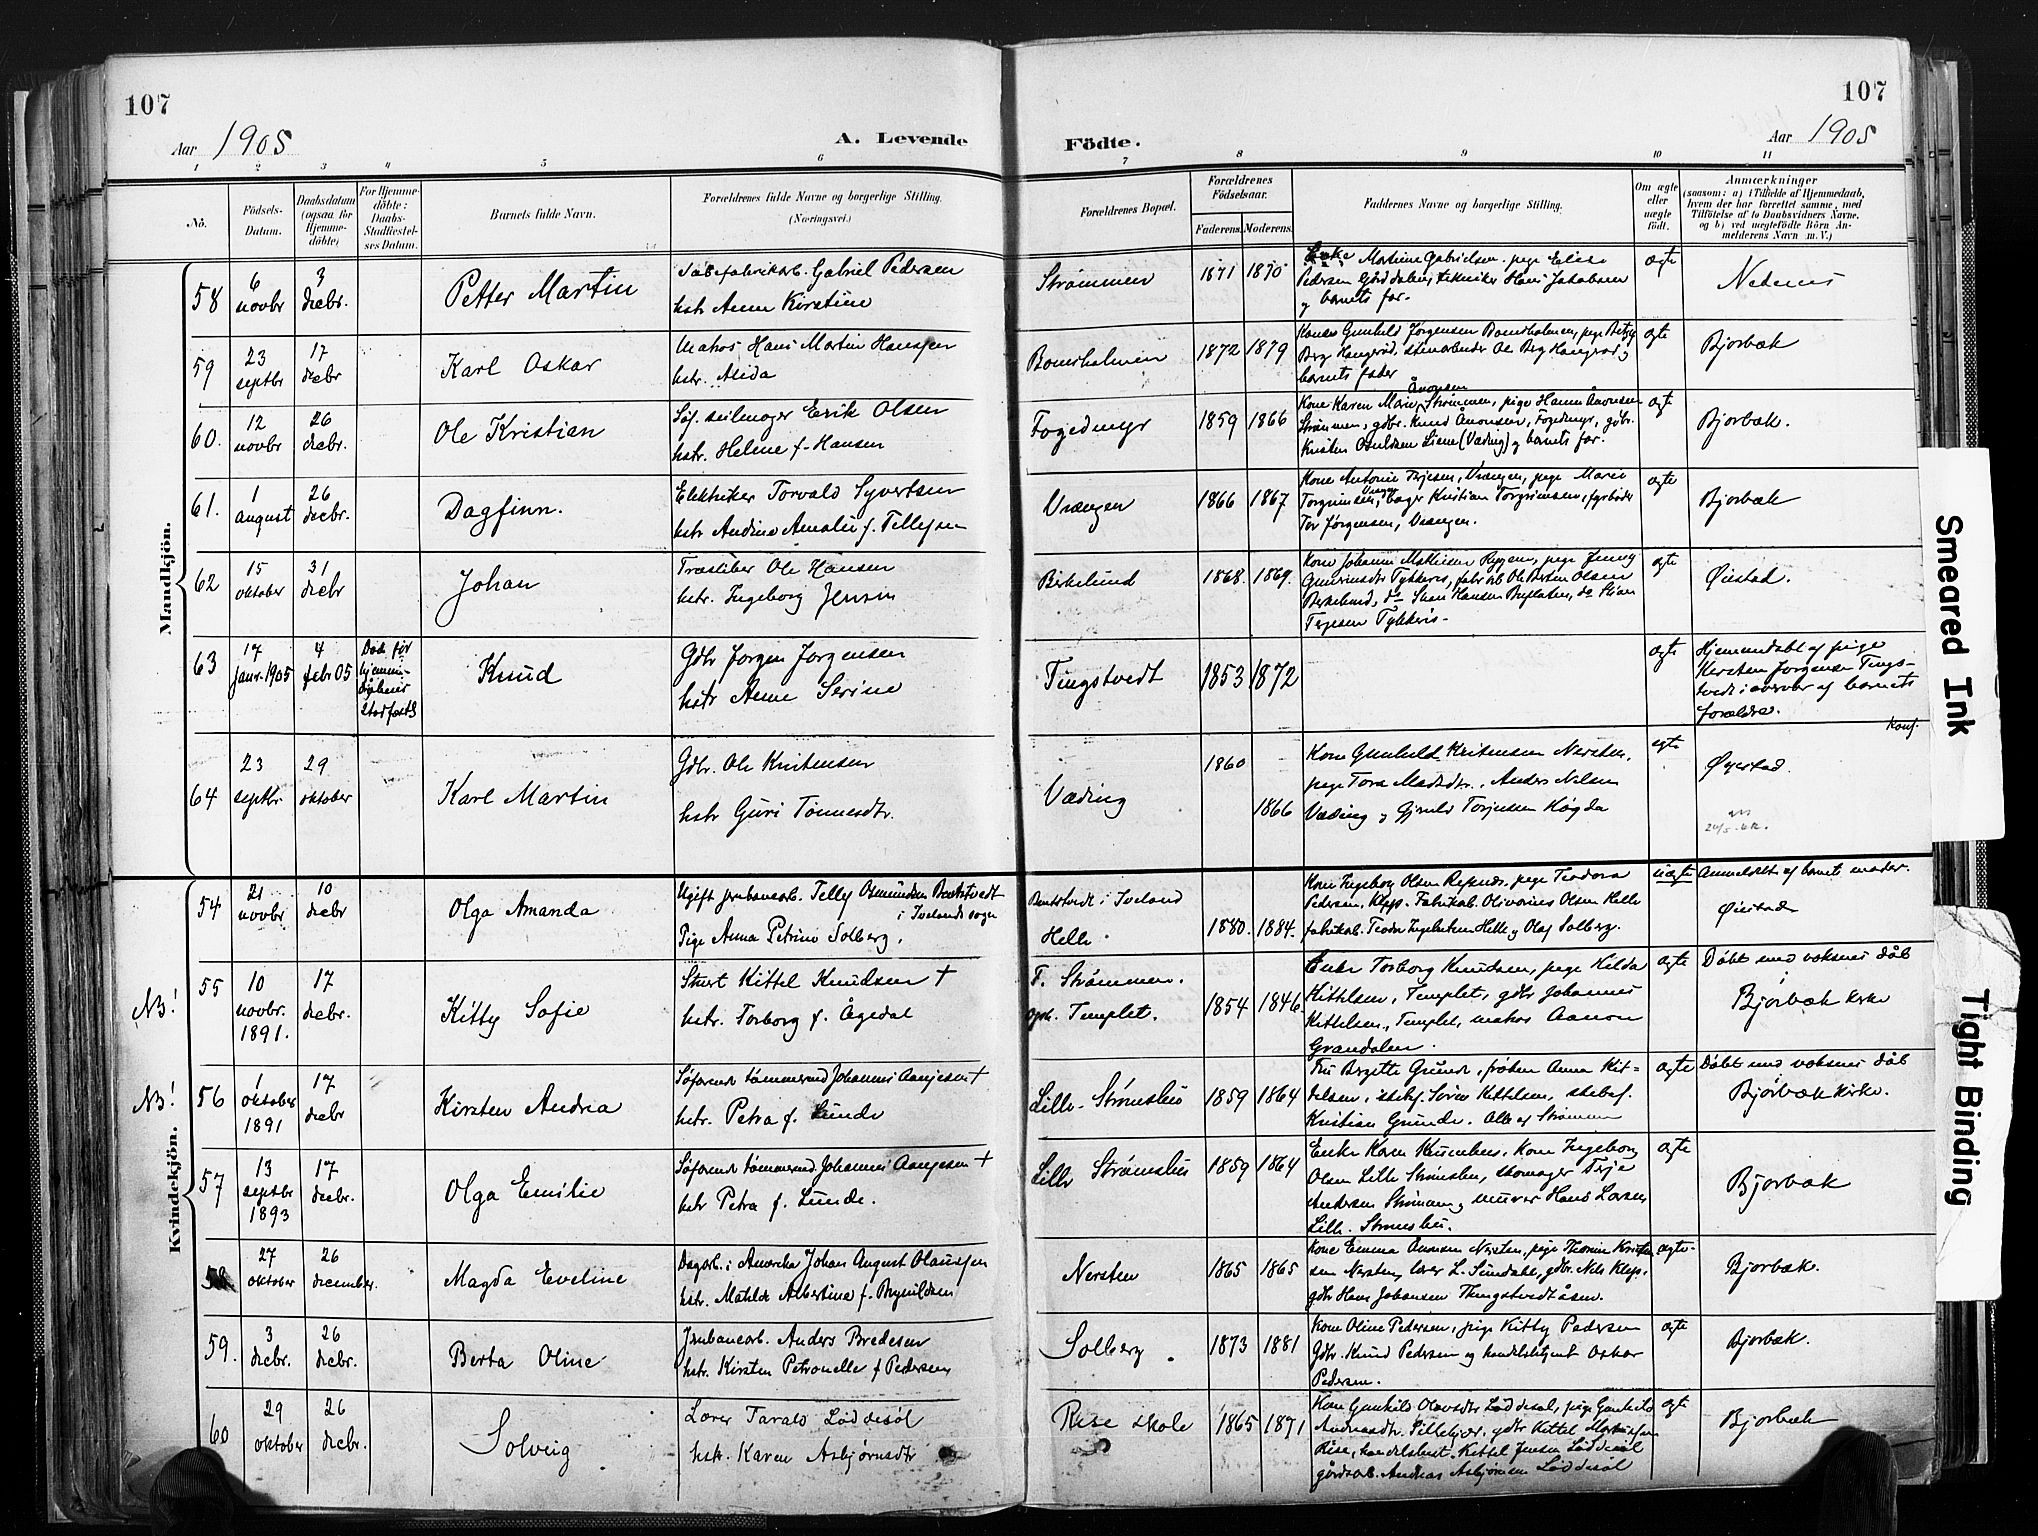 107
107
Aar 1905
A. Levende
Födte.
Aar 1905
1 2 3 4 5 6 7 8 9 10 11
No.
Födsels-Datum.
Daabsdatum (ogsaa for Hjemme-döbte)
For Hjemme-döbte: Daabs-Stadfæstel-ses Datum.
Barnets fulde Navn.
Forældrenes fulde Navne og borgerlige Stilling.
(Næringsvei.)
Forældrenes Bopæl.
Forældrenes Födselsaar.
Faderens. Moderens.
Faddernes Navne og borgerlige Stilling.
Om ægte eller uægte födt.
Anmærkninger
(saasom: a) i Tilfælde af Hjemmedaab, hvem der har forrettet samme, med Tilföielse af to Daabsvidners Navne, og b) ved uægtefödte Börn An-melderens Navn m. V.)
Mandkjön.
58
6 novbr
3 decbr.
Petter Martin
Gabriel Pedersen
hstr Anne Kirstine
Strømmen
1871 1870
Martine Gabrielsen, pige Elise
Pedersen tekniker Hans Jakobsen
og barnets far.
ægte
Nedenes
59
23 septbr
17 decbr
Karl Oskar
Matros Hans Martin Hansen
hstr. Alida
Bomsholmen
1872 1879
Kones Gunhild Jørgensen Bomsholmen, pige Betzy
Berg Hangrød, stenarbeider Ole Berg Hangrød,
barnets fader
ægte
Bjorbæk
60.
12 novbr
26 decbr.
Ole Kristian
Søf. seilmager Erik Olsen
hstr. Helene f. Hansen
Fogedmyr
1859 1866
Aanonsen
Kone Karen Marie Strømmen, pige Hanna Aanonsen
Strømmen, gdbr. Knud Aanonsen, Fogedmyr, gdbr.
Kristen (Væding) og barnets far.
ægte
Bjorbæk.
61.
1 august
26 decbr.
Dagfinn.
Elektriker Torvald Syvertsen
hstr Andrea Amalie f. Tellefsen
Vrængen
1866 1867
Kone Antonie Terjesen, Vrængen, pige Marie
Torgrimsen, bager Kristian Torgrimsen, fyrbøder
Tor Jørgensen, Vrængen.
ægte
Bjorbæk
62
15 oktober
31 decbr
Johan
Træsliber Ole Hansen
hstr. Ingeborg Jensen
Birkelund
1868. 1869.
Kone Johanne Mathisen Rygene, pige Jenny
fabr.arb Ole Berten Olsen
Birkelund, do Hansen do
Terjesen
ægte
Øiestad.
63
17 janr. 1905
4 febr 05
Død før
hjemme-
daabens
stadfæst.
Knud
Gdbr Jørgen Jørgensen
hstr Anne Serine
Tingstvedt
1853 1872
ægte
Hjemmedøbt af pige
Kirsten Jørgensen Tings-
tvedt i overvær af barnets
forældre.
Konf.
64
23 septbr.
29 oktober
Karl Martin
Gdbr. Ole Kristensen
hstr Guri Tønnesdtr.
Væding
1860 1866
Kone Gunhild Kristensen Nersten,
pige Tora Madsdtr., Anders Nilsen
Væding og Gjeruld Torjusen Høgda
ægte
Øyestad
Kvindekjön.
54
21 novbr
10 decbr
Olga Amanda
Ugift jernbanearb. Tellef Osmundsen Berkstvedt
i Ivelands sogn
Pige Anna Petrine Solberg.
i Iveland
Helle.
1880. 1884.
Kone Ingeborg Olsen, pige Teodora
Pedersen, Klep. Fabrikab. Olivarius Olsen Helle
fabrikab. Helle og Olaf Solberg.
uægte
Anmeldelse af barnets moder.
Øiestad
NB!
55
10 novbr. 1891.
17 decbr.
Kitty Sofie
Stuert Kittel Knudsen †
hstr. Torborg f. Ågedal
F. Strømmen.
oph. Templet.
1854 1846
Enke Torborg Knudsen, pige Hilda
Kittelsen, Templet, gdbr Johannes
Kittelsen, Templet, matros Aanon
Grændalen.
ægte
Døbt med voksnes dåb
i
Bjorbæk kirke
NB!
56
1 oktober 1891
17 decbr
Kirsten Andrea
Søfarende tømmermd Johannes Aanjesen †
hstr. Petra f. Lunde
Lille-Strømsbu
1859 1864
Fru Birgitte Grunde, frøken Anna Kit-
telsen, skibsf. Søren Kittelsen, skibsf.
Kristian Grunde. Alle af Strømmen
ægte
Døbt med voksnes dåb
Bjorbæk kirke.
57
13 septbr 1893
17 decbr.
Olga Emilie
Søfarende tømmermd. Johannes Aanjesen †
hstr Petra f. Lunde.
Lille Strømsbu
1859 1864
Enke Karen Knudsen, kone Ingeborg
Olsen Lille Strømsbu, skomager Terje
Andersen Strømmen, murer Hans Larsen
Lille-Strømsbu.
ægte
Bjorbæk
58
27 oktober
26 december.
Magda Eveline
Dagarb. i Amerika Johan August Olaussen
hstr. Matilde Albertine f. Brynildsen
Nersten
1865 1865
Kone Emma Aanonsen Nersten, pige Thomine Kristen-
sen Nersten, lærer L. Sundahl, gdbr. Nils Klep,
gdbr Hans Johansen Thingstvedtåsen.
ægte
Bjorbæk.
59.
3 decbr.
26 decbr.
Berta Oline
Jernbanearb. Anders Bredesen
hstr. Kirsten Petronelle f Pedersen
Solberg
1873 1881
Kone Oline Pedersen, pige Kitty Pedersen
Gdbr. Knud Pedersen og handelsbetjent Oskar
Pedersen.
ægte
Bjorbæk.
60
29 oktober
26 decbr.
Solveig
Lærer Tarald Løddesøl
hstr. Karen Asbjørnsdtr
Rise skole
1865 1871
Kone Gunhild Olavsdtr Løddesøl, pige Gunhild
Andreasdtr. gdbr Kittel Mortensen
Rise, handelsbest. Kittel Jensen Løddesøl
gårdarb. Andreas Asbjørnsen Løddesøl
ægte
Bjorbæk
Smeared Ink
Tight Binding